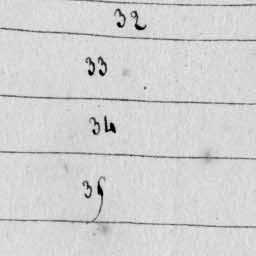 32
33
34
35